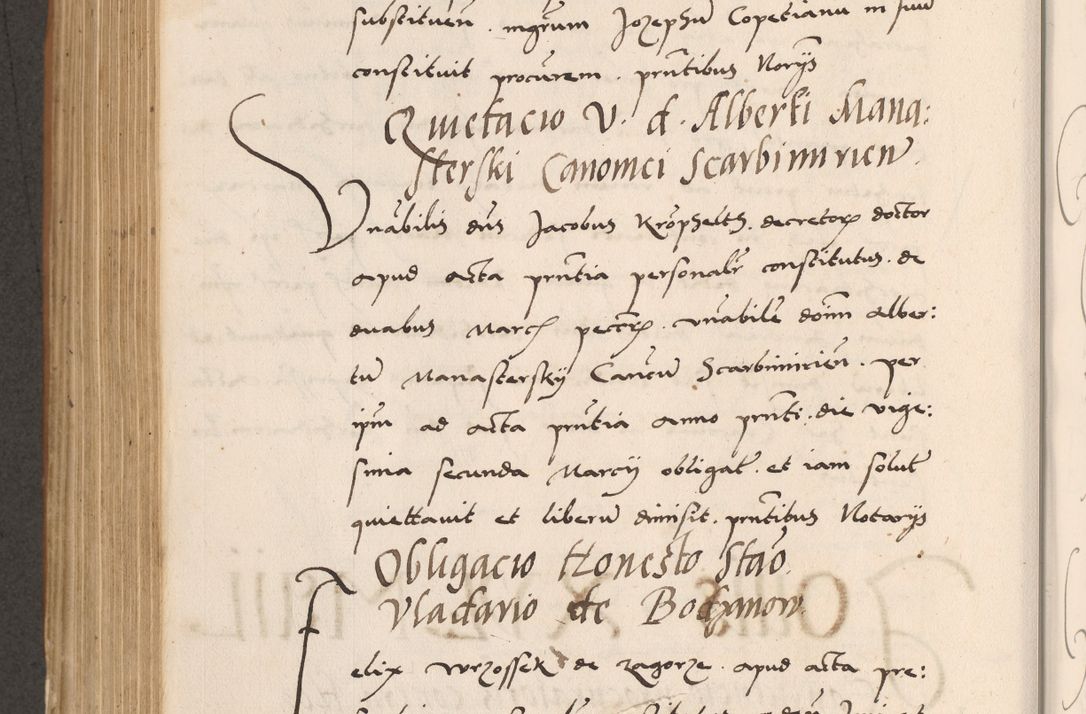 substituen. nigrum Jozephũ Copetianũ in suũ
constituit procurem. pñtibus Norijs
Quietacio V. d. Alberti Mana:
sterski Canonici Scarbimirien.
Vnabilis dñs Jacobus Kropselth. decretor doctor
apud acta pñtia personalr constitutus. de
duabus March peccr. vnabilẽ dominũ Alber:
tũ Manastersky Canũcũ Scarbimirień. per
ipm ad acta pñtia anno pñti. die vige:
sima secunda Marcij obligat. et iam solut
quiettauit et liberũ dimisit. pñtibus Notarijs
Obligacio Honesto Stão
Vladario de Bodzanow.
Felix Wrzossek de zagorze. apud acta pre: